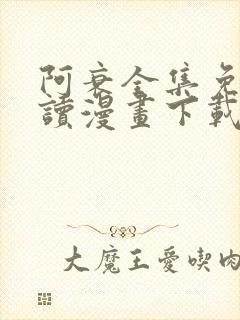 阿衰全集免
讀漫畫下載
大魔王愛喫肉